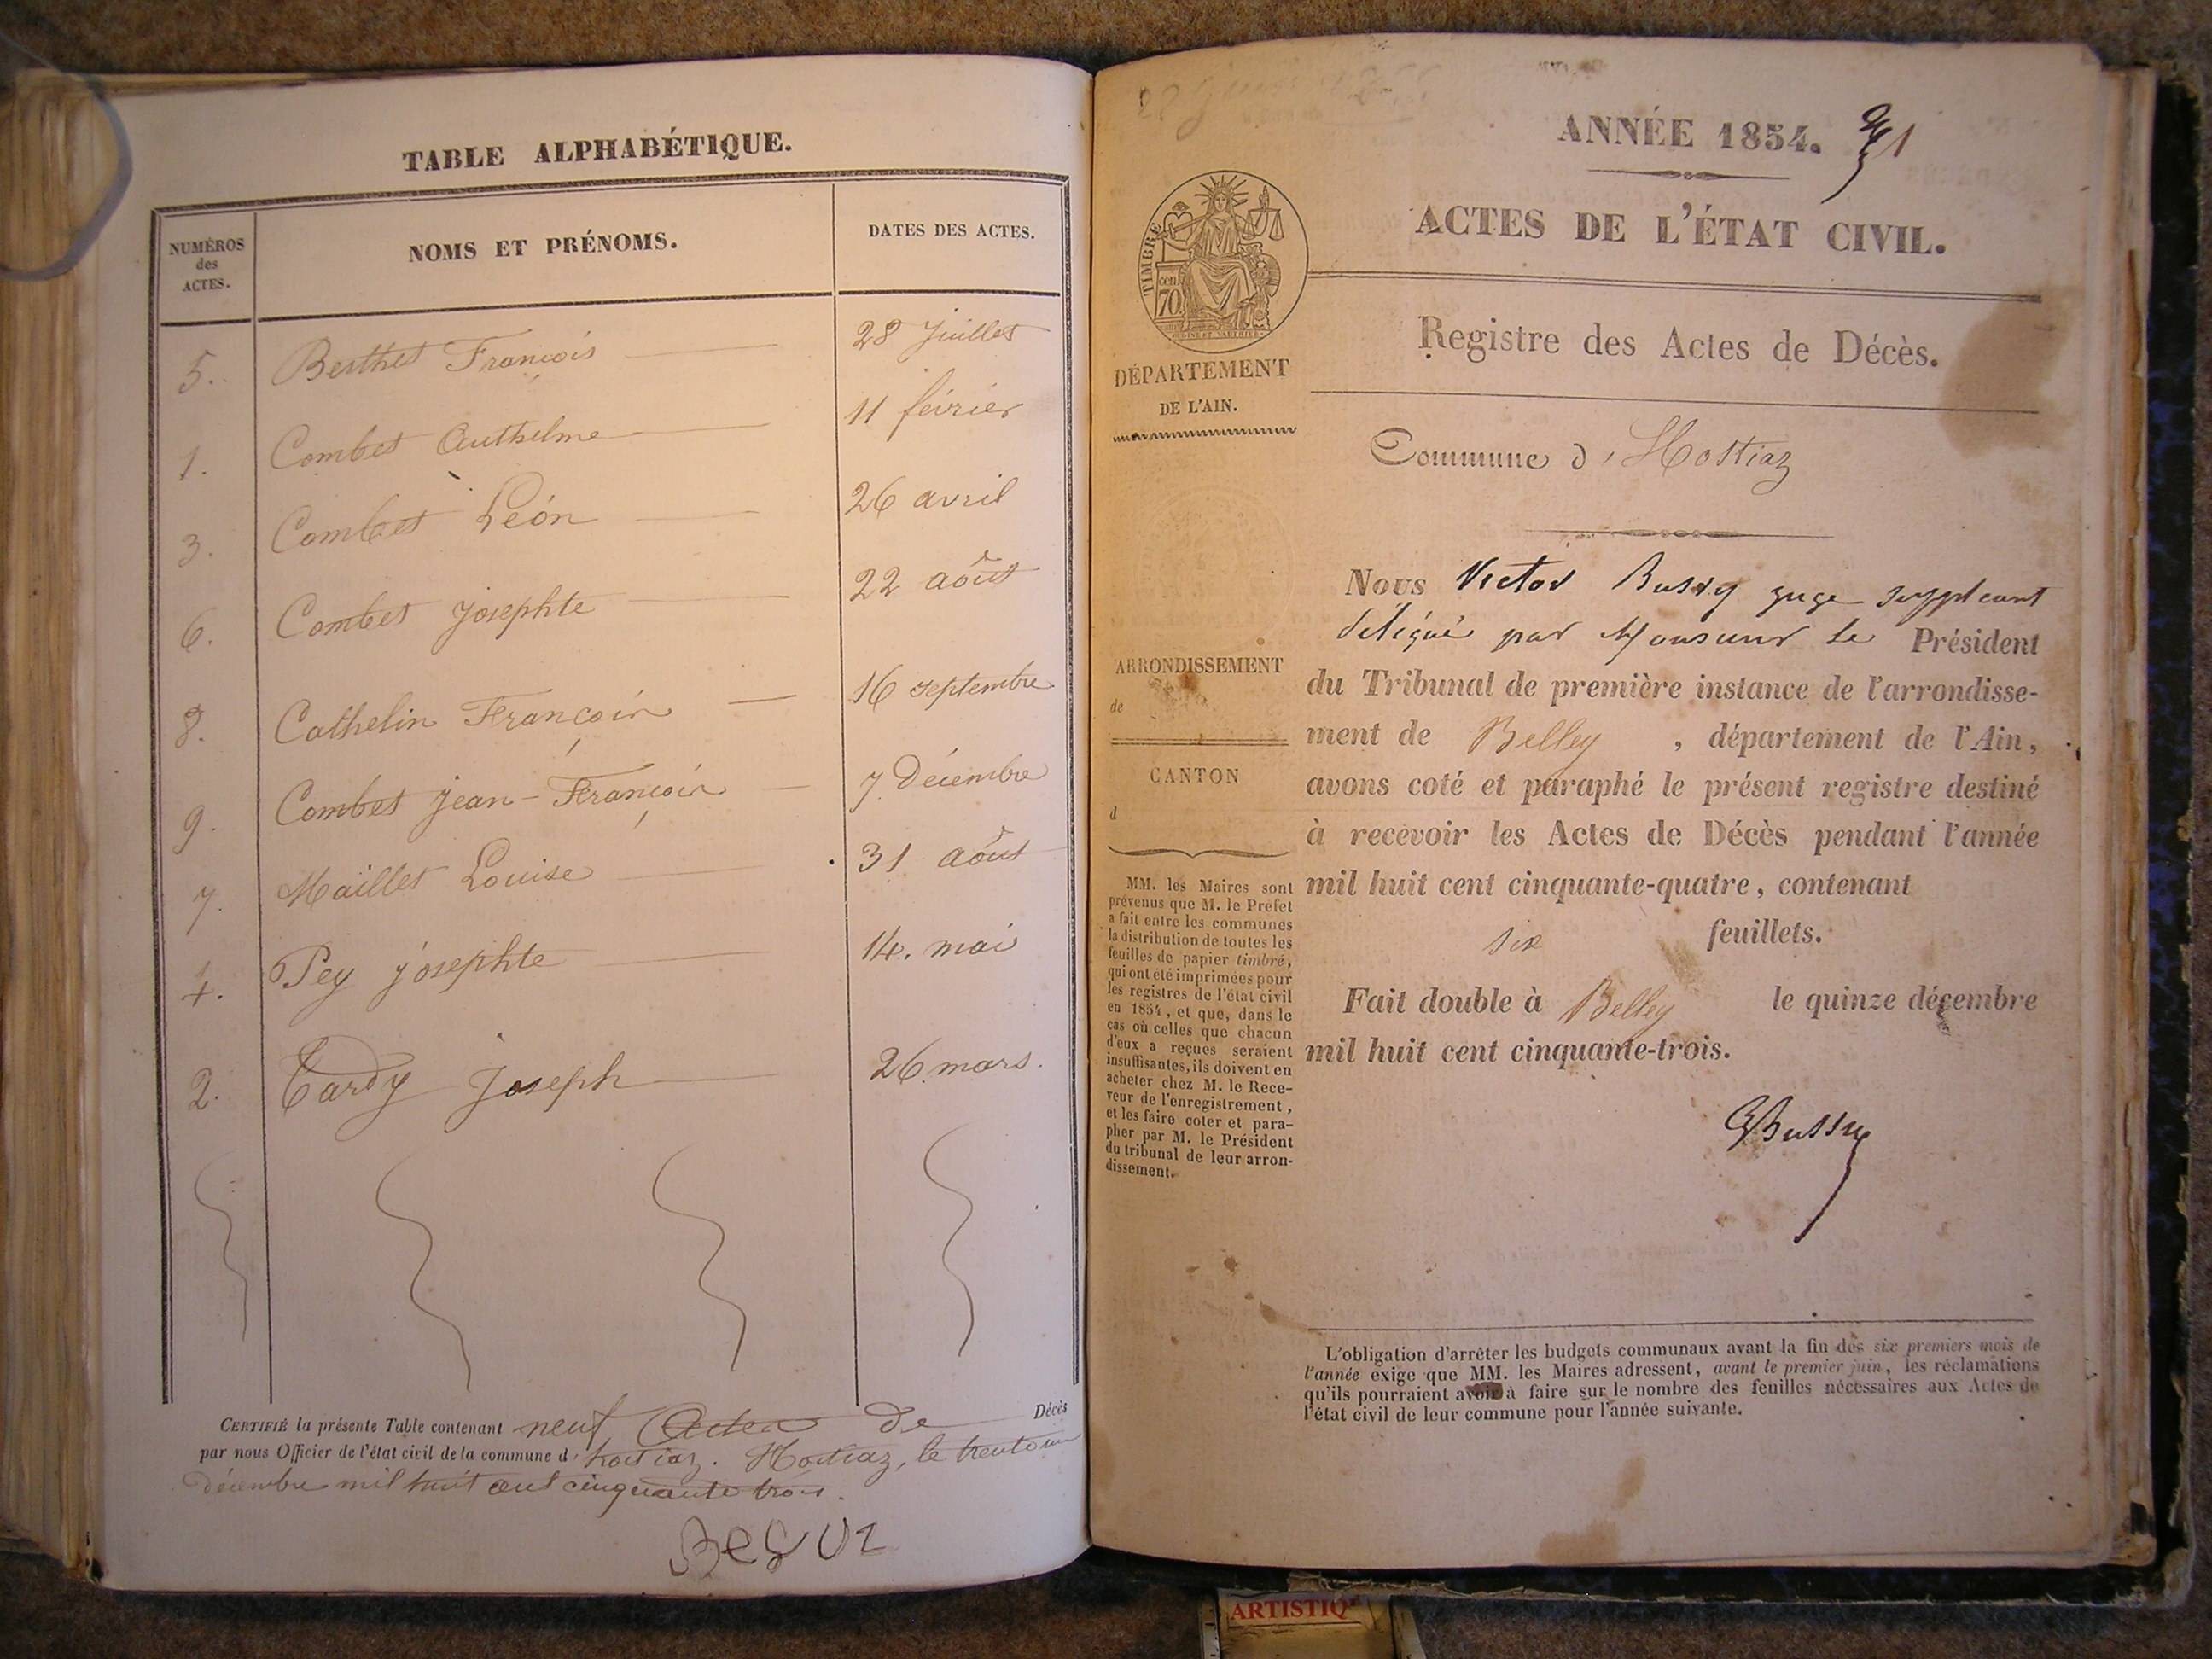 TABLE ALPHABÉTIQUE.
NUMÉROS
des
ACTES.
NOMS ET PRÉNOMS.
DATES DES ACTES.
5. Berthet François 28 Juillet
1. Combet Anthelme 11 février
3. Combet Léon 26 avril
6. Combet Josephte 22 août
8. Cathelin François 16 septembre
9. Combet Jean-François 7 Décembre
7. Maillet Louise 31 août
4. Pey Josephte 14. mai
2. Tardy Joseph 26 mars.
CERTIFIÉ la présente Table contenant neuf Actes de Décès
par nous Officier de l'état civil de la commune d'hostiaz. Hostiaz, le trente un
décembre mil huit cent cinquante trois.
ANNÉE 1854.
ACTES DE L'ÉTAT CIVIL.
TIMBRE
70
DÉPARTEMENT
DE L'AIN.
ARRONDISSEMENT
de
CANTON
d
MM. les Maires sont
prévenus que M. le Préfet
a fait entre les communes
la distribution de toutes les
feuilles de papier timbré,
qui ont été imprimées pour
les registres de l'état civil
en 1854, et que, dans le
cas où celles que chacun
d'eux a reçues seraient
insuffisantes, ils doivent en
acheter chez M. le Rece-
veur de l'enregistrement,
et les faire coter et para-
pher par M. le Président
du tribunal de leur arron-
dissement.
Registre des Actes de Décès.
Commune d'Hostiaz
Nous Victor Bussy juge suppleant
délégué par Monsieur le Président
du Tribunal de première instance de l'arrondisse-
ment de Belley, département de l'Ain,
avons coté et paraphé le présent registre destiné
à recevoir les Actes de Décès pendant l'année
mil huit cent cinquante-quatre, contenant
six feuillets.
Fait double à Belley le quinze décembre
mil huit cent cinquante-trois.
Bussy
L'obligation d'arrêter les budgets communaux avant la fin des six premiers mois de
l'année exige que MM. les Maires adressent, avant le premier juin, les réclamations
qu'ils pourraient avoir à faire sur le nombre des feuilles nécessaires aux Actes de
l'état civil de leur commune pour l'année suivante.
ARTISTIQ